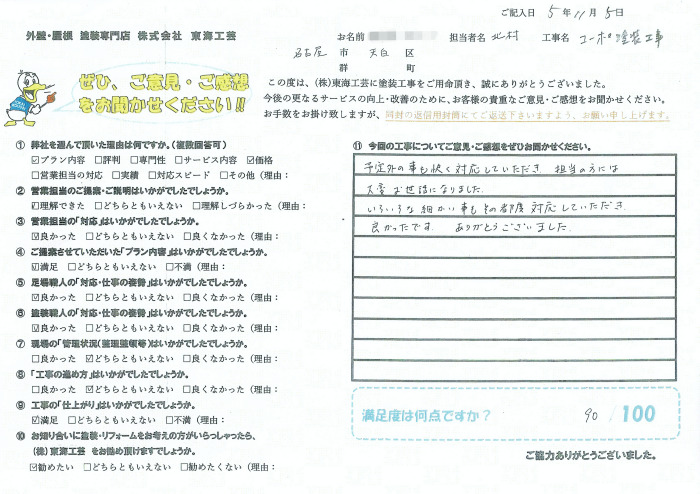 ご記入日 5年11月5日
外壁・屋根 塗装専門店 株式会社 東海工芸
お名前 担当者名 北村 工事名 コーポ塗装工事
名古屋 市 天白 区
郡 町
ぜひ、ご意見・ご感想
をお聞かせください!!
この度は、(株)東海工芸に塗装工事をご用命頂き、誠にありがとうございました。
今後の更なるサービスの向上・改善のために、お客様の貴重なご意見・ご感想をお聞かせください。
お手数をお掛け致しますが、同封の返信用封筒にてご返送下さいますよう、お願い申し上げます。
① 弊社を選んで頂いた理由は何ですか。(複数回答可)
☑プラン内容 □評判 □専門性 □サービス内容 ☑価格
□営業担当の対応 □実績 □対応スピード □その他(理由:
② 営業担当のご提案・ご説明はいかがでしたでしょうか。
☑理解できた □どちらともいえない □理解しづらかった(理由:
③ 営業担当の「対応」はいかがでしたでしょうか。
☑良かった □どちらともいえない □良くなかった(理由:
④ ご提案させていただいた「プラン内容」はいかがでしたでしょうか。
☑満足 □どちらともいえない □不満(理由:
⑤ 足場職人の「対応・仕事の姿勢」はいかがでしたでしょうか。
☑良かった □どちらともいえない □良くなかった(理由:
⑥ 塗装職人の「対応・仕事の姿勢」はいかがでしたでしょうか。
☑良かった □どちらともいえない □良くなかった(理由:
⑦ 現場の「管理状況(整理整頓等)はいかがでしたでしょうか。
□良かった ☑どちらともいえない □良くなかった(理由:
⑧ 「工事の進め方」はいかがでしたでしょうか。
□良かった ☑どちらともいえない □良くなかった(理由:
⑨ 工事の「仕上がり」はいかがでしたでしょうか。
☑満足 □どちらともいえない □不満(理由:
⑩ お知り合いに塗装・リフォームをお考えの方がいらっしゃったら、
(株)東海工芸 をお勧め頂けますでしょうか。
☑勧めたい □どちらともいえない □勧めたくない(理由:
⑪ 今回の工事についてご意見・ご感想をぜひお聞かせください。
予定外の事も快く対応していただき 担当の方には
大変お世話になりました。
いろいろな細かい事もその都度対応していただき
良かったです。 ありがとうございました。
満足度は何点ですか? 90 /100
ご協力ありがとうございました。